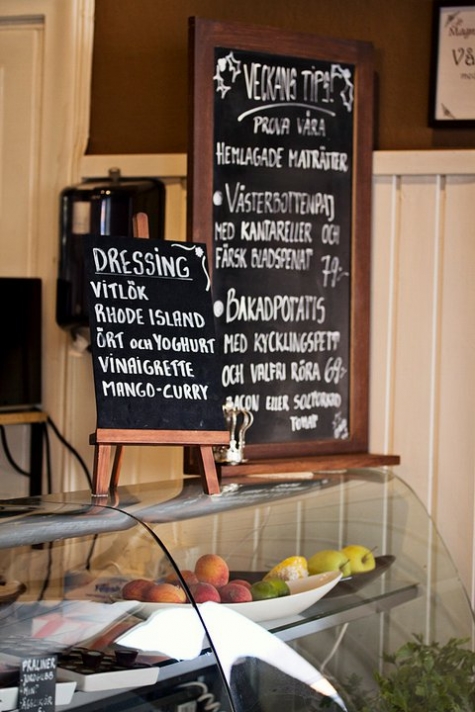 VECKANS TIPS!
PROVA VÅRA
HEMLAGADE MATRÄTTER
VÄSTERBOTTENPAJ
MED KANTARELLER OCH
FÄRSK BLADSPENAT 79:-
BAKADPOTATIS
MED KYCKLINGSPETT
OCH VALFRI RÖRA 69:-
BACON ELLER SOLTORKAD
TOMAT
DRESSING
VITLÖK
RHODE ISLAND
ÖRT OCH YOGHURT
VINAIGRETTE
MANGO-CURRY
PRALINER